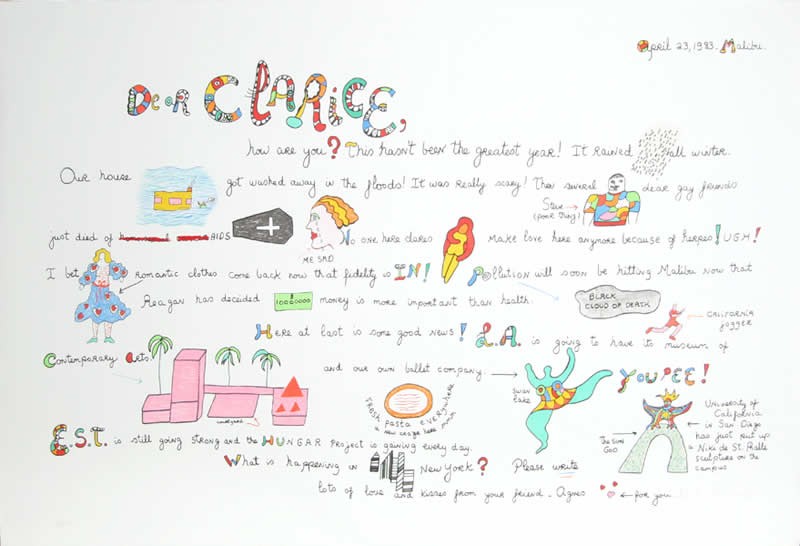 April 23, 1983. Malibu.
Dear CLARICE,
how are you? This hasn't been the greatest year! It rained all winter.
Our house got washed away in the floods! It was really scary! Then several dear gay friends
Steve (poor thing)
just died of AIDS No one here dares make love here anymore because of herpes! UGH!
ME SAD
I bet romantic clothes come back now that fidelity is IN! Pollution will soon be hitting Malibu now that
Reagan has decided money is more important than health.
BLACK CLOUD OF DEATH
CALIFORNIA JOGGER
Here at last is some good news! L.A. is going to have its museum of
Contemporary Arts! and our own ballet company. YOUPEE!
Swan Lake
TRASH pasta everywhere
a new craze here
E.S.T. is still going strong and the HUNGAR PROJECT is gaining every day.
The Sun God
University of California in San Diego has just put up Niki de St. Phalle sculpture on the campus
What is happening in New York? Please write
lots of love and kisses from your friend - Agnes
for you!